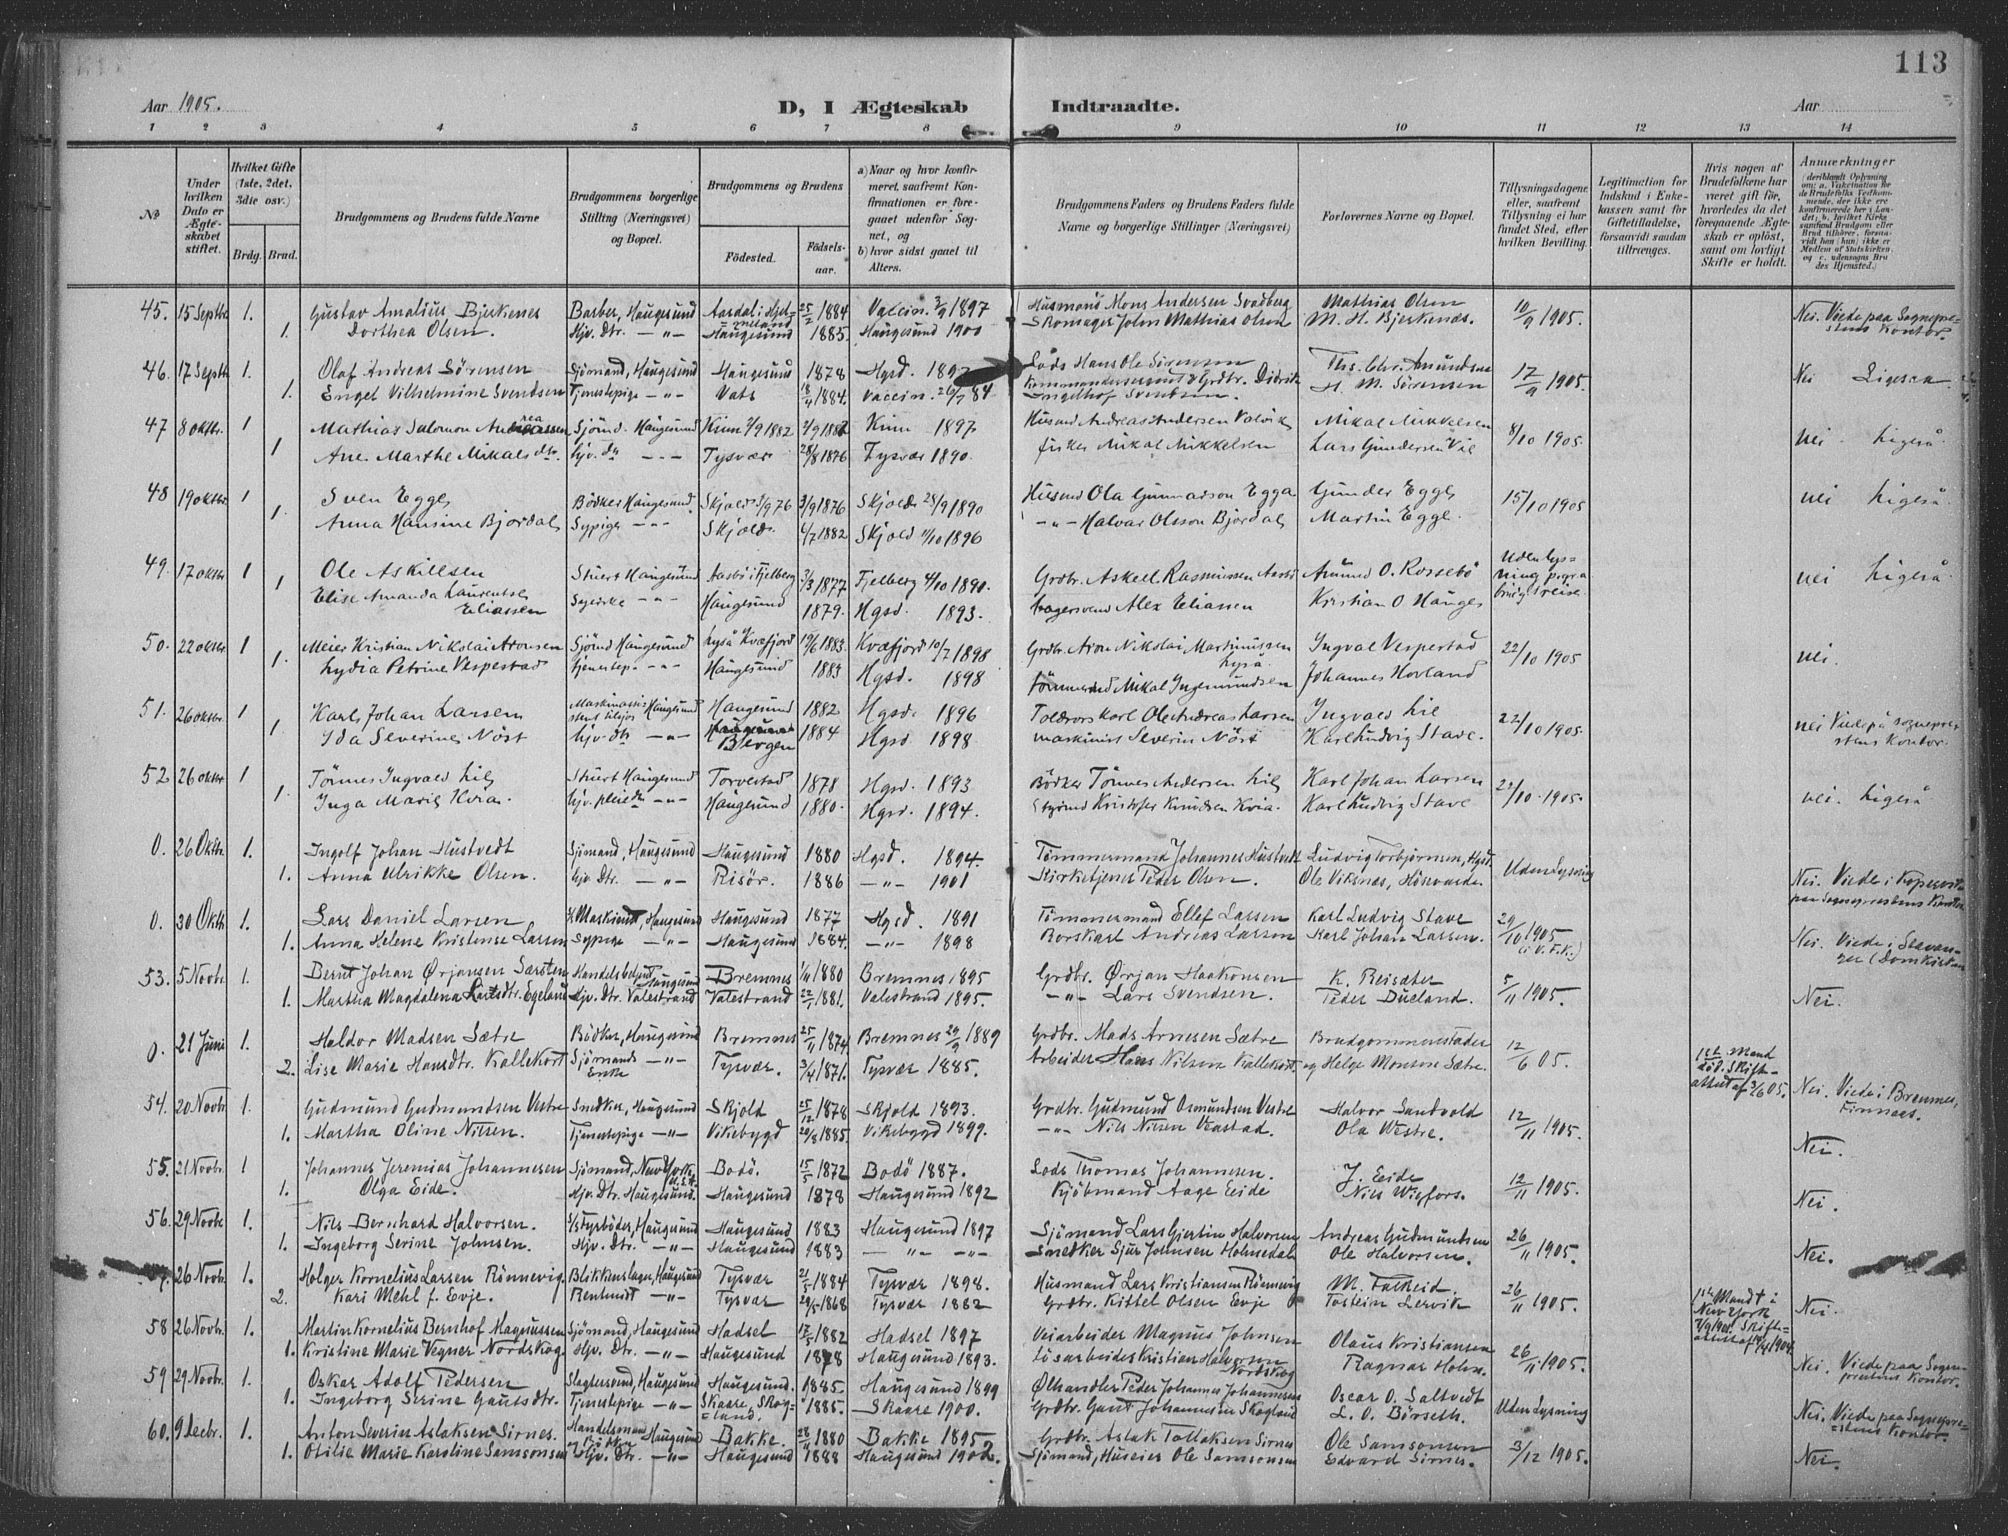 113
Aar 1905.
D, I Ægteskab Indtraadte.
Aar
1 2 3 4 5 6 7 8 9 10 11 12 13 14
No
Under hvilken Dato er Ægteskabet stiftet.
Hvilket Gifte (1ste, 2det, 3die osv.)
Brdg. Brud.
Brudgommens og Brudens fulde Navne
Brudgommens borgerlige Stilling (Næringsvei) og Bopæl.
Brudgommens og Brudens
Födested.
Födselsaar.
a) Naar og hvor konfirmeret, saafremt Konfirmationen er foregaaet udenfor Sognet, og
b) hvor sidst gaaet til Alters.
Brudgommens Faders og Brudens Faders fulde Navne og borgerlige Stillinger (Næringsvei)
Forlovernes Navne og Bopæl.
Tillysningsdagene eller, saafremt Tillysning ei har fundet Sted, efter hvilken Bevilling.
Legitimation for Indskud i Enkekassen samt for Giftetilladelse, forsaavidt saadan tiltrænges.
Hvis nogen af Brudefolkene har været gift för, hvorledes da det foregaaende Ægteskab er oplöst, samt om lovligt Skifte er holdt.
Anmærkninger
45. 15 Septbr 1. Gustav Amalius Bjerkenes Barber, Haugesund Aardal i Hjelmeland 25/2 1884 Vaccin. 3/9 1897 Husmand Mons Andersen Svadberg Mathias Olsen 10/9 1905. Nei. Viede paa Sognepræstens Kontor.
1. Dorthea Olsen. Hjv. Dtr. -"- Haugesund 1885. Haugesund 1900 Skomager John Mathias Olsen M. H. Bjerkenæs.
46. 17 Septbr 1. Olaf Andreas Sörensen Sjömand, Haugesund Haugesund 1878 Hgsd. Lods Hans Ole Sörensen Ths. Chr. Amundsen 17/9 1905. Nei Ligesaa
1. Engel Vilhelmine Svendsen Tjenestepige -"- Vats 18/4 1884. Vaccin. Grdbr. Didrik Ingelhof Svendsen. H. M. Sörensen
47 8 oktbr. 1 Mathias Salomon Andreassen Sjömd. Haugesund Kinn 1/9 1882 Kinn 1897 Husmd Andreas Andersen Mikal Mikkelsen 8/10 1905 nei ligeså.
1 Ane Marthe Mikalsdtr. hjv. dtr -"- Tysvær 28/8 1876 Tysvær 1890. fisker Mikal Mikkelsen Lars Gundersen
48 19 oktbr 1 Sven Egge Bödker Haugesund Skjold 3/9 76 3/9 1876 Skjold 28/9 1890 Husmd Ola Gunnarson Egge Gunder Egge 15/10 1905 nei ligeså.
1. Anna Hansine Bjordal Sypige -"- Skjold. 6/7 1882 Skjold 11/10 1896 -"- Halvar Olsson Bjordal Martin Egge.
49. 17 oktbr 1 Ole Askilsen Stuert Haugesund i Fjelberg 3/3 1877 Fjelberg 4/10 1890. Grdbr. Askell Rasmussen Amund O. Rossebö nei ligeså.
1 Elise Amanda Laurentse Eliassen Haugesund 1879. Hgsd. 1893. Alex Eliassen Kristian O Hauge
50. 22 oktbr 1 Meier Kristian Nikolai Aronsen Sjömd Haugesund Kvæfjord 19/6 1883. Kvæfjord 10/7 1898 Grdbr. Aron Nikolai Martinussen Ingval Vespestad 22/10 1905 nei.
1. Lydia Petrine Vespestad tjenestep. -"- Haugesund 1883 Hgsd. 1898 Tömmermd Mikal Ingemundsen Johannes Hovland
51. 26 oktbr 1 Karl Johan Larsen Haugesund Haugesund 1882 Hgsd. 1896 Ole Andreas Larsen Ingvald Lie 22/10 1905. nei Viede på sogneprestens kontor.
1 Ida Severine Nöst hjv. dtr -"- Bergen 1884 Hgsd. 1898. maskinist Severin Nöst Karl Ludvig Stave.
52 26 oktbr. 1 Tönnes Ingvald Lie Stuert Haugesund Torvestad 1878 Hgsd. 1893 Bödker Tönnes Andersen Lie Karl Johan Larsen 22/10 1905. nei. ligeså
1. Inga Marie Kvia. -"- Haugesund 1880. Hgsd. 1894. Kristofer Knudsen Kvia. Karl Ludvig Stave
0. 26 Oktbr. 1. Ingolf Johan Hustvedt Sjömand, Haugesund Haugesund 1880 Hgsd. 1894. Tömmermand Johannes Hustvedt Ludvig Torbjørnsen, Hgsd. Uden lysning Nei. Viede i Kopervik paa Sogneprestens Kontor
1. Anna Ulrikke Olsen. hjv. Dtr. -"- Risör. 1886 -"- 1901 Kirketjener Peder Olsen. Ole Viksnæs,
0. 30 Oktbr. 1. Lars Daniel Larsen Haugesund Haugesund 1877 Hgsd. 1891 Tömmermand Ellef Larsen Karl Ludvig Stave 29/10 1905 Nei. Viede i Stavanger (Domkirken
1. Anna Helene Kristense Larsen Sypige -"- Haugesund 1884. -"- 1898 Andreas Larsen Karl Johan Larsen.
53. 5 Novbr. 1. Bernt Johan Ørjansen Særsten Handelsbetjent Haugesund Bremnes 1/11 1880 Bremnes 1895 Grdbr. Ørjan Haakonsen K. Reisæter 5/11 1905. Nei.
1. Martha Magdalena Larsdtr. Egeland Hjv. Dtr. Valestrand Valestrand 1881. Valestrand 1895. -"- Lars Svendsen. Peder Dueland.
0. 21 Juni 1. Haldor Madsen Sætre Bödker, Haugesund Bremnes 25/11 1874. Bremnes 29/9 1889 Grdbr. Mads Arnesen Sætre Brudgommens Fader 12/6 05. 1st. Mand död. Skifteattest af 3/6 05. Nei. Viede i Bremnes, Finnaas.
2. Lise Marie Hansdtr. Kallekort Sjömands Enke -"- Tysvær. 3/4 1871. Tysvær 1885. Arbeider Hans Nilsen Kallekort. og Helge Monsen Sætre.
54. 20 Novbr. 1. Gudmund Gudmundsen Vestre Snedker, Haugesund Skjold 25/12 1878 Skjold 1893. Grdbr. Gudmund Osmundsen Vestre Halvor Sandvold 12/11 1905. Nei.
1. Martha Oline Nilsen. Tjenestepige -"- Vikebygd 29/8 1885. Vikebygd 1899. -"- Nils Nilsen Ola Westre.
55. 21 Novbr. 1 Johannes Jeremias Johannesen Sjömand, New York Bodö. 15/5 1872 Bodö 1887. Lods Thomas Johannesen. J. Eide 12/11 1905. Nei.
1. Olga Eide. Hjv. Dtr. Haugesund. Haugesund 1878 Haugesund 1892 Kjöbmand Aage Eide Nils Wigfors.
56. 29 Novbr 1. Nils Bernhard Halvorsen. Haugesund Haugesund 1883 Haugesund 1897 Sjömand Lars Gjertin Halvorsen Andreas Gudmundsen 26/11 1905. Nei.
1. Ingeborg Serine Johnsen. Hjv. Dtr. -"- Haugesund 1883 -"- -"- Snedker Sjur Johnsen Holmedal Ole Halvorsen.
57. 26 Novbr. 1. Holger Kornelius Larsen Rönnevig Blikkenslager, Haugesund Tysvær 21/5 1884 Tysvær 1898. Husmand Lars Kristiansen Rönnevig M. Falkeid. 26/11 1905. Nei.
2. Kari Mehl f. Evje. -"- Tysvær 1868 Tysvær 1882 Grdbr. Kittel Olsen Evje Tostein Lervik
58 26 Novbr. 1. Martin Kornelius Bernhof Magnussen Sjömand, Haugesund Hadsel 1882 Hadsel 1897 Veiarbeider Magnus Johnsen Olaus Kristiansen 26/11 1905. Nei. Viede paa Sogneprestens Kontor.
1. Kristine Marie Vegner Nordskog Hjv. Dtr. -"- Haugesund 1878 Haugesund 1893. Lösarbeider Kristian Halvorsen Nordskog Ragnar Holm.
59 29 Novbr. 1. Oskar Adolf Pedersen Slagtersvend, Haugesund Haugesund. 1885. Haugesund 1899 Ølhandler Peder Johannes Johannesen Oscar O. Saltvedt Uden lysning Nei. Viede paa Sogneprestens Kontor.
1. Ingeborg Serine Gautsdtr. Tjenestepige -"- Skaare, Skogland. 1885. Skaare 1900. Grdbr. Gaut Johannesen Skogland L. O. Börseth.
60. 9 Decbr. 1. Anton Severin Aslaksen Sirnes. Handelsmand Haugesund Bakke. 28/11 1880 Bakke 1895 Grdbr. Aslak Tollaksen Sirnes Ole Samsonsen 3/12 1905. Nei.
1. Otilie Marie Karoline Samsonsen Hjv. Dtr. -"- Haugesund 1888 Haugesund 1902. Sjömand, Huseier Ole Samsonsen Edvard Sirnes.